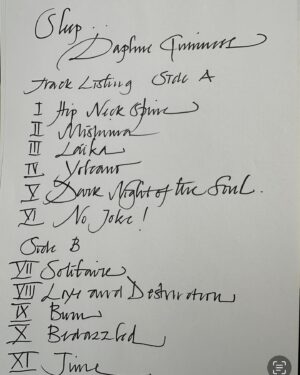 Sleep..
Daphne Guinness
Track Listing Side A
I Hip Neck Spine
II Mishima
III Laika
IV Volcano
V Dark Night of the Soul.
VI No Joke!
Side B
VII Solitaire
VIII Love and Destruction
IX Burn
X Bedazzled
XI Time